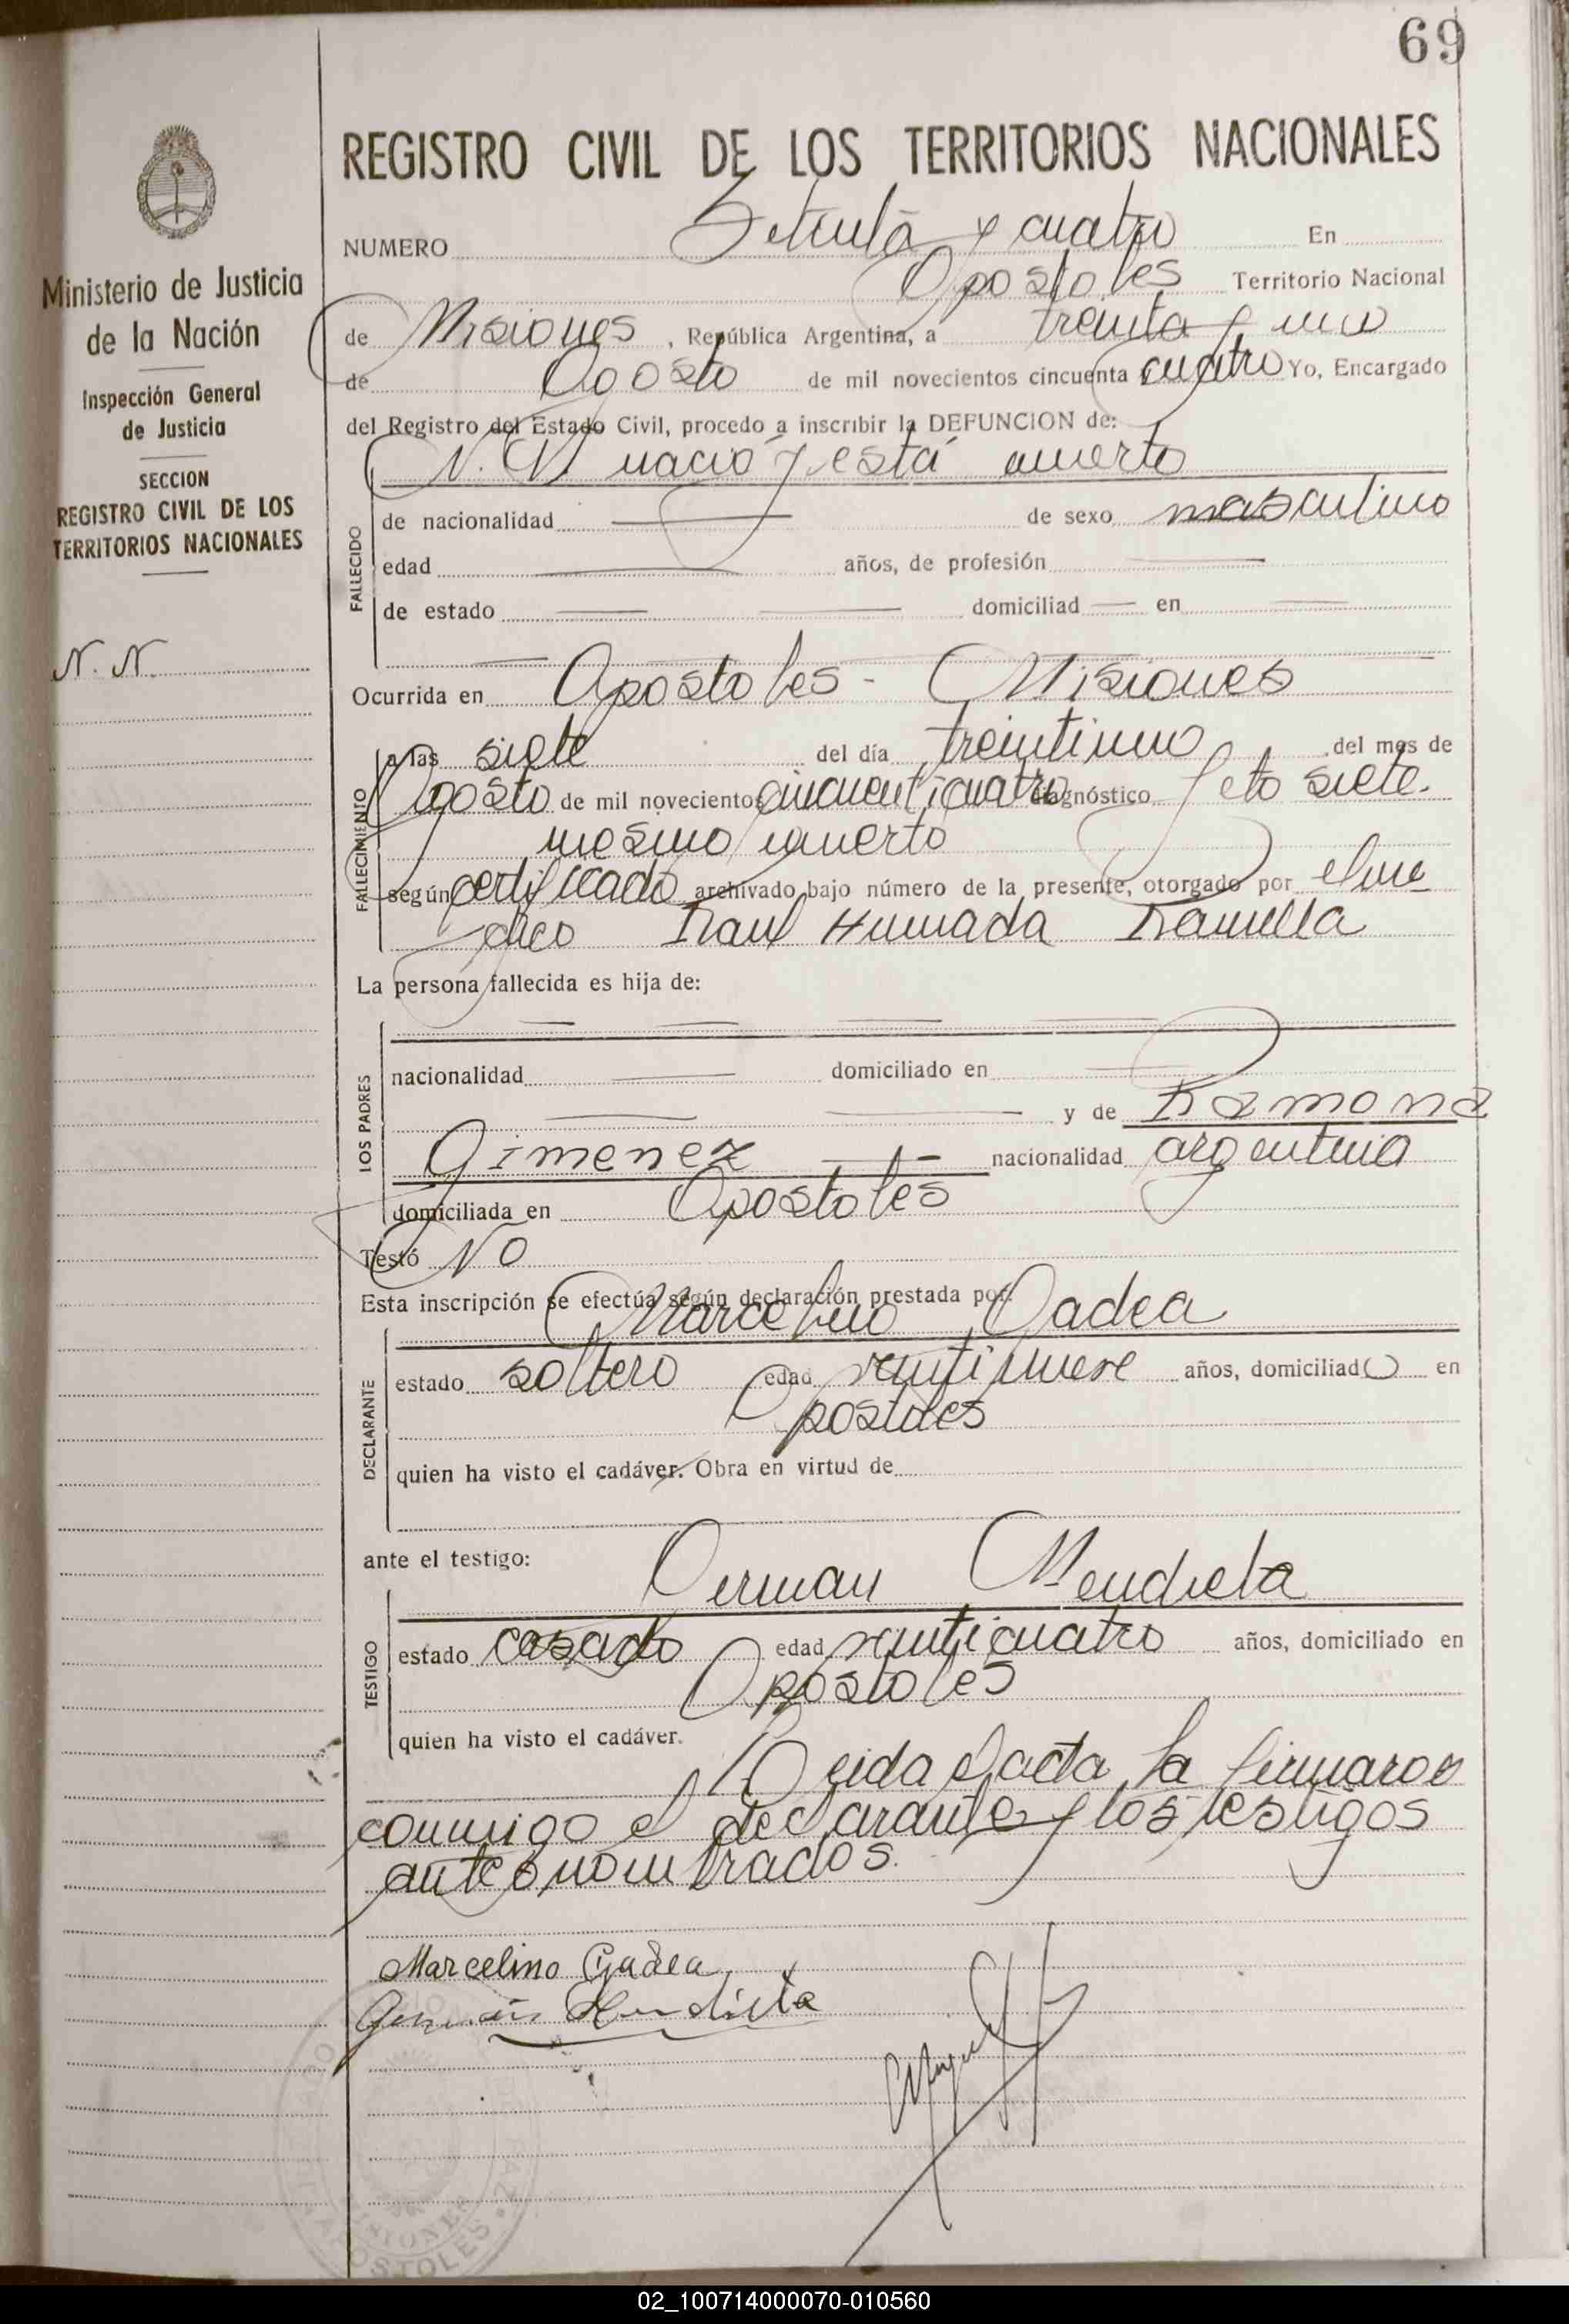 69
REGISTRO CIVIL DE LOS TERRITORIOS NACIONALES
Ministerio de Justicia
de la Nación
Inspección General
de Justicia
SECCION
REGISTRO CIVIL DE LOS
TERRITORIOS NACIONALES
N. N.
NUMERO Setenta y cuatro En
Apostoles Territorio Nacional
de Misiones, República Argentina, a treinta y uno
de Agosto de mil novecientos cincuenta cuatro Yo, Encargado
del Registro del Estado Civil, procedo a inscribir la DEFUNCION de:
N. N. nació y está muerto
FALLECIDO
de nacionalidad — de sexo masculino
edad — años, de profesión —
de estado — — domiciliad — en —
Ocurrida en Apostoles - Misiones
FALLECIMIENTO
a las siete del día treintiuno del mes de
Agosto de mil novecientos cincuenticuatro diagnóstico feto siete
mesino muerto
según certificado archivado bajo número de la presente, otorgado por el me
dico Raul Humada Ramella
La persona fallecida es hija de:
— — — —
LOS PADRES
nacionalidad — domiciliado en —
— — y de Ramona
Gimenez — — nacionalidad argentina
domiciliada en Apostoles
Testó No
Esta inscripción se efectúa según declaración prestada por:
Marcelino Gadea
DECLARANTE
estado soltero edad veintinueve años, domiciliado en
Apostoles
quien ha visto el cadáver. Obra en virtud de
ante el testigo:
German Mendieta
TESTIGO
estado casado edad veinticuatro años, domiciliado en
Apostoles
quien ha visto el cadáver.
Leida el acta, la firmaron
conmigo el declarante y los testigos
antesnombrados.
Marcelino Gadea
German Mendieta
MISIONES
APOSTOLES
02_100714000070-010560